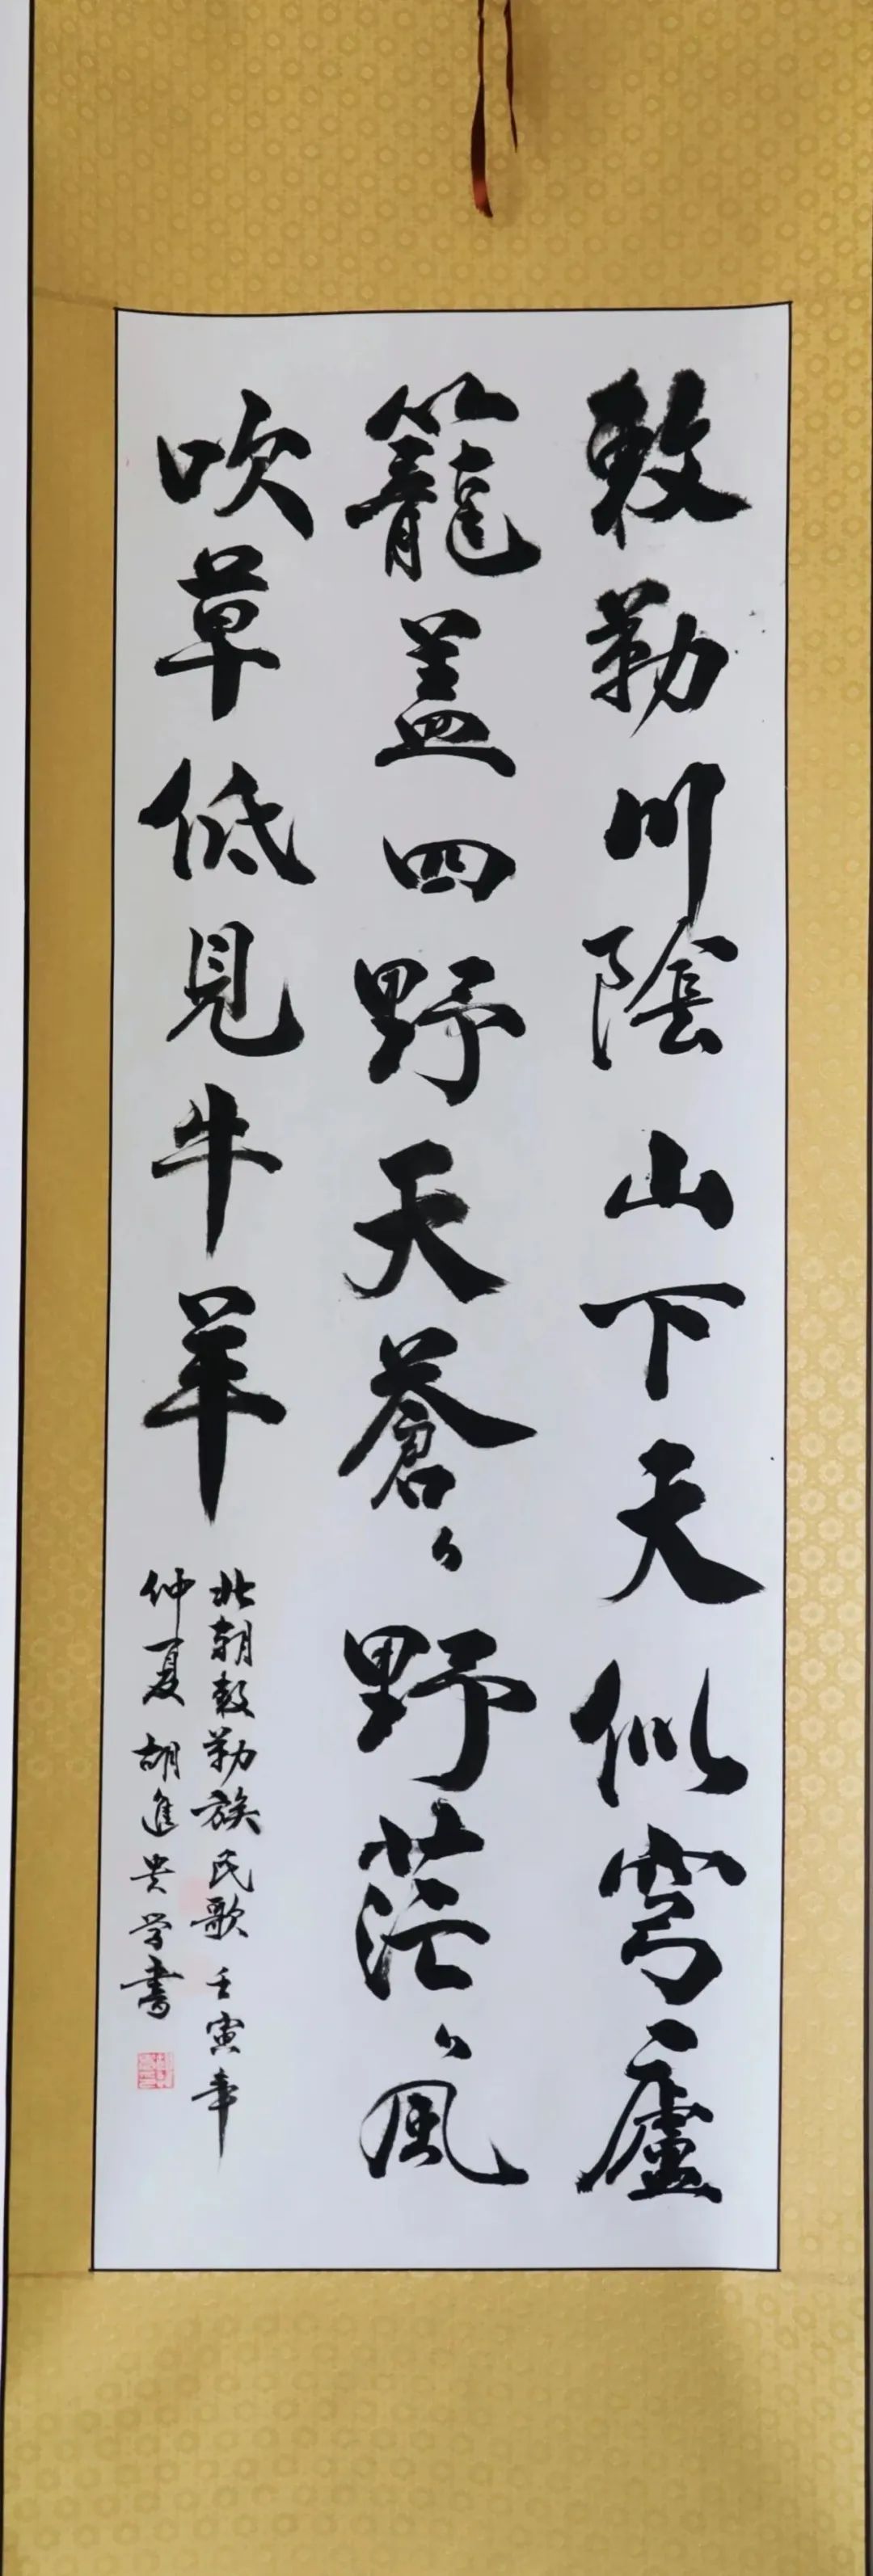 敕勒川陰山下天似穹廬
籠蓋四野天蒼々野茫々風
吹草低見牛羊
北朝敕勒族民歌 壬寅年
仲夏 胡進貴学書